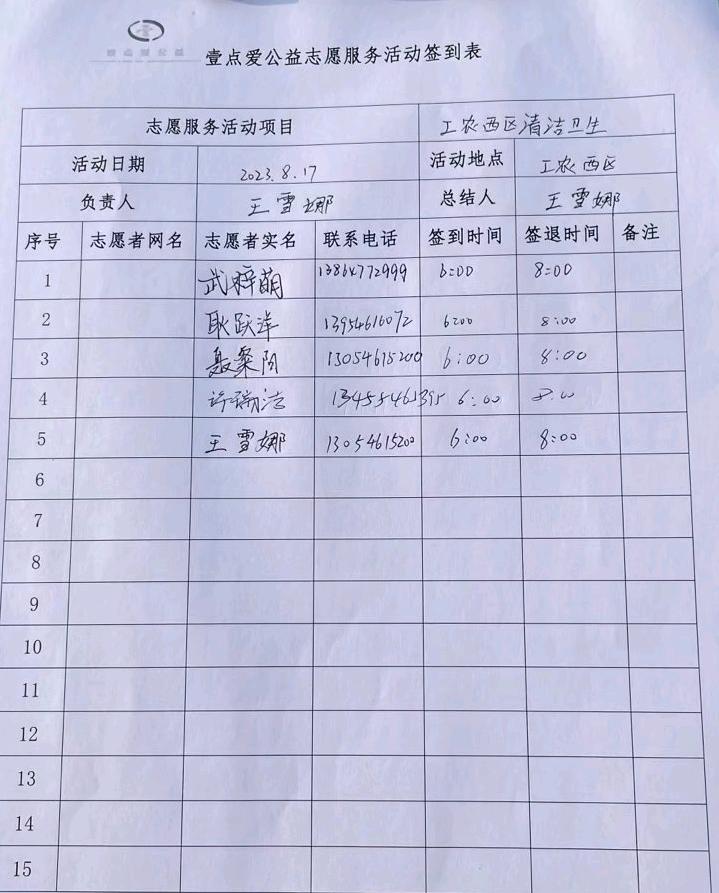 壹点爱公益志愿服务活动签到表
志愿服务活动项目 工农西区清洁卫生
活动日期 2023.8.17 活动地点 工农西区
负责人 王雪娜 总结人 王雪娜
序号 志愿者网名 志愿者实名 联系电话 签到时间 签退时间 备注
1 武梓萌 13864772999 6:00 8:00
2 耿跃洋 13954616072 6:00 8:00
3 13054615200 6:00 8:00
4 许瑞洁 6:00 8:00
5 王雪娜 13054615200 6:00 8:00
6
7
8
9
10
11
12
13
14
15